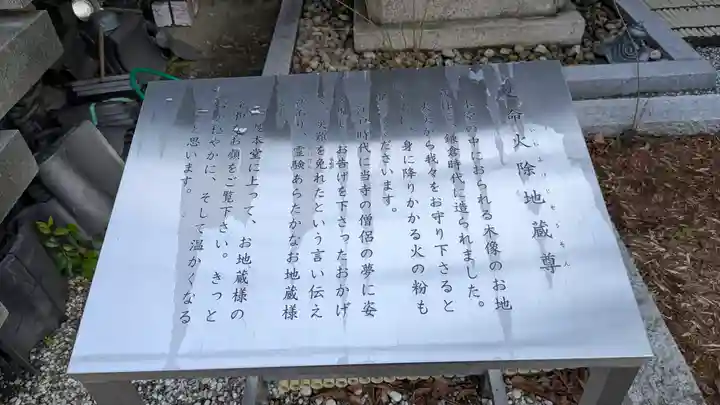 命火除地蔵尊
本堂の中におられる木像のお地
鎌倉時代に造られました。
から我々をお守り下さると
身に降りかかる火の粉も
くださいます。
時代に当寺の僧侶の夢に姿
お告げを下さったおかげ
難を免れたという言い伝え
霊験あらたかなお地蔵様
本堂に上って、お地蔵様の
お顔をご覧下さい。きっと
やかに、そして温かくなる
と思います。